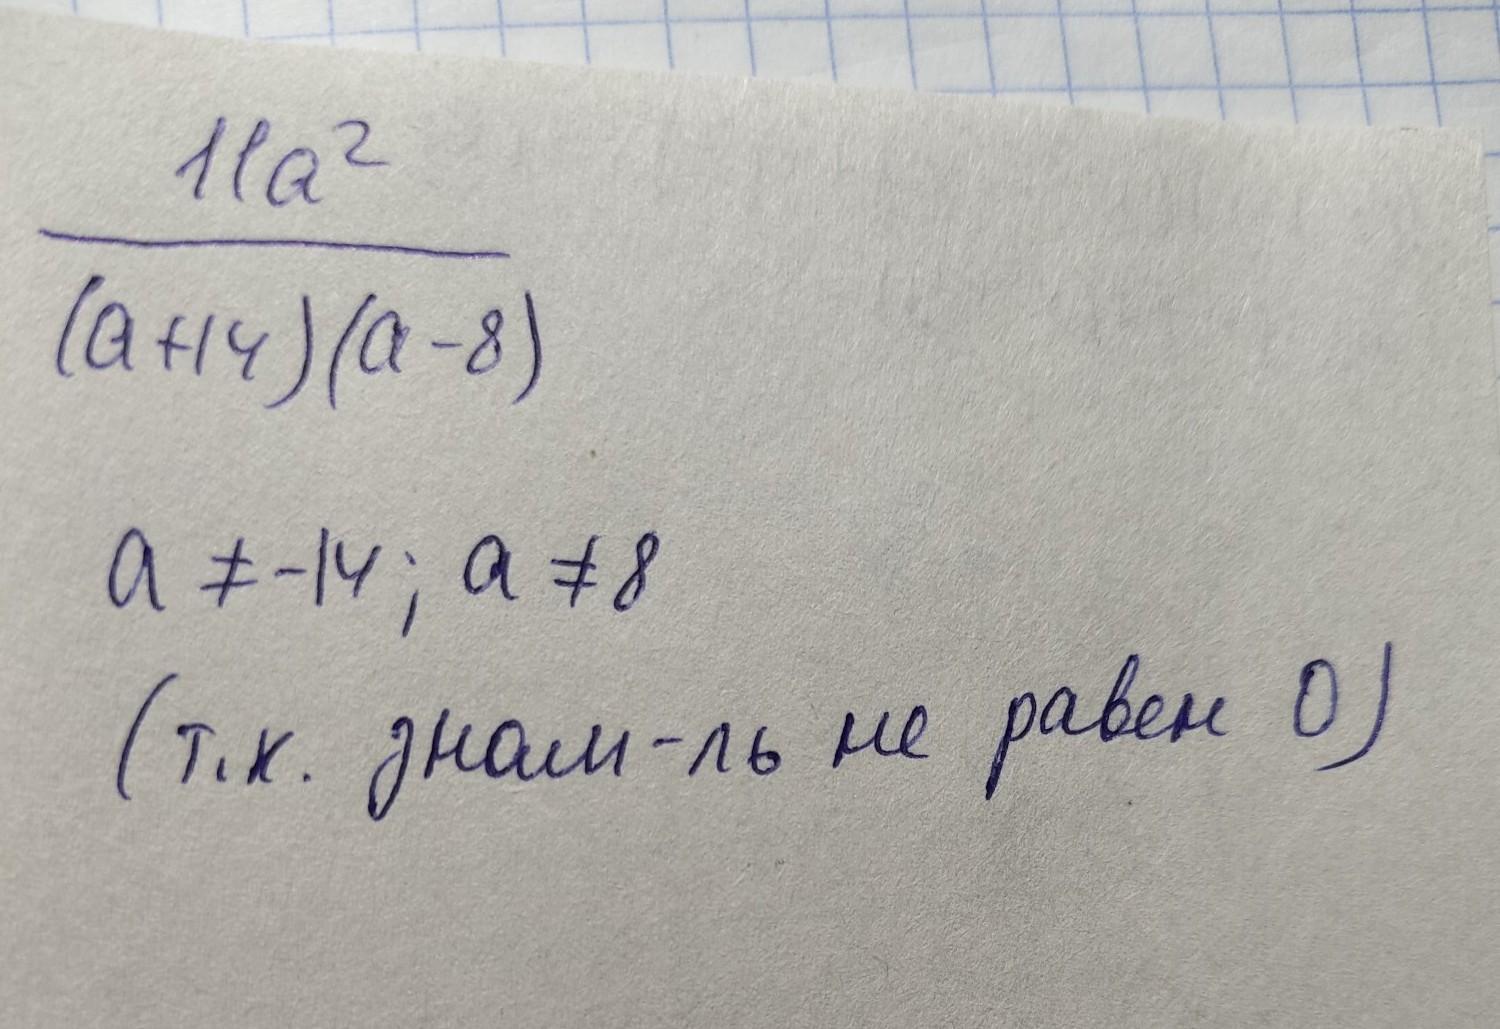 11a²
(a+14)(a-8)
a ≠ -14; a ≠ 8
(т.к. знам-ль не равен 0)